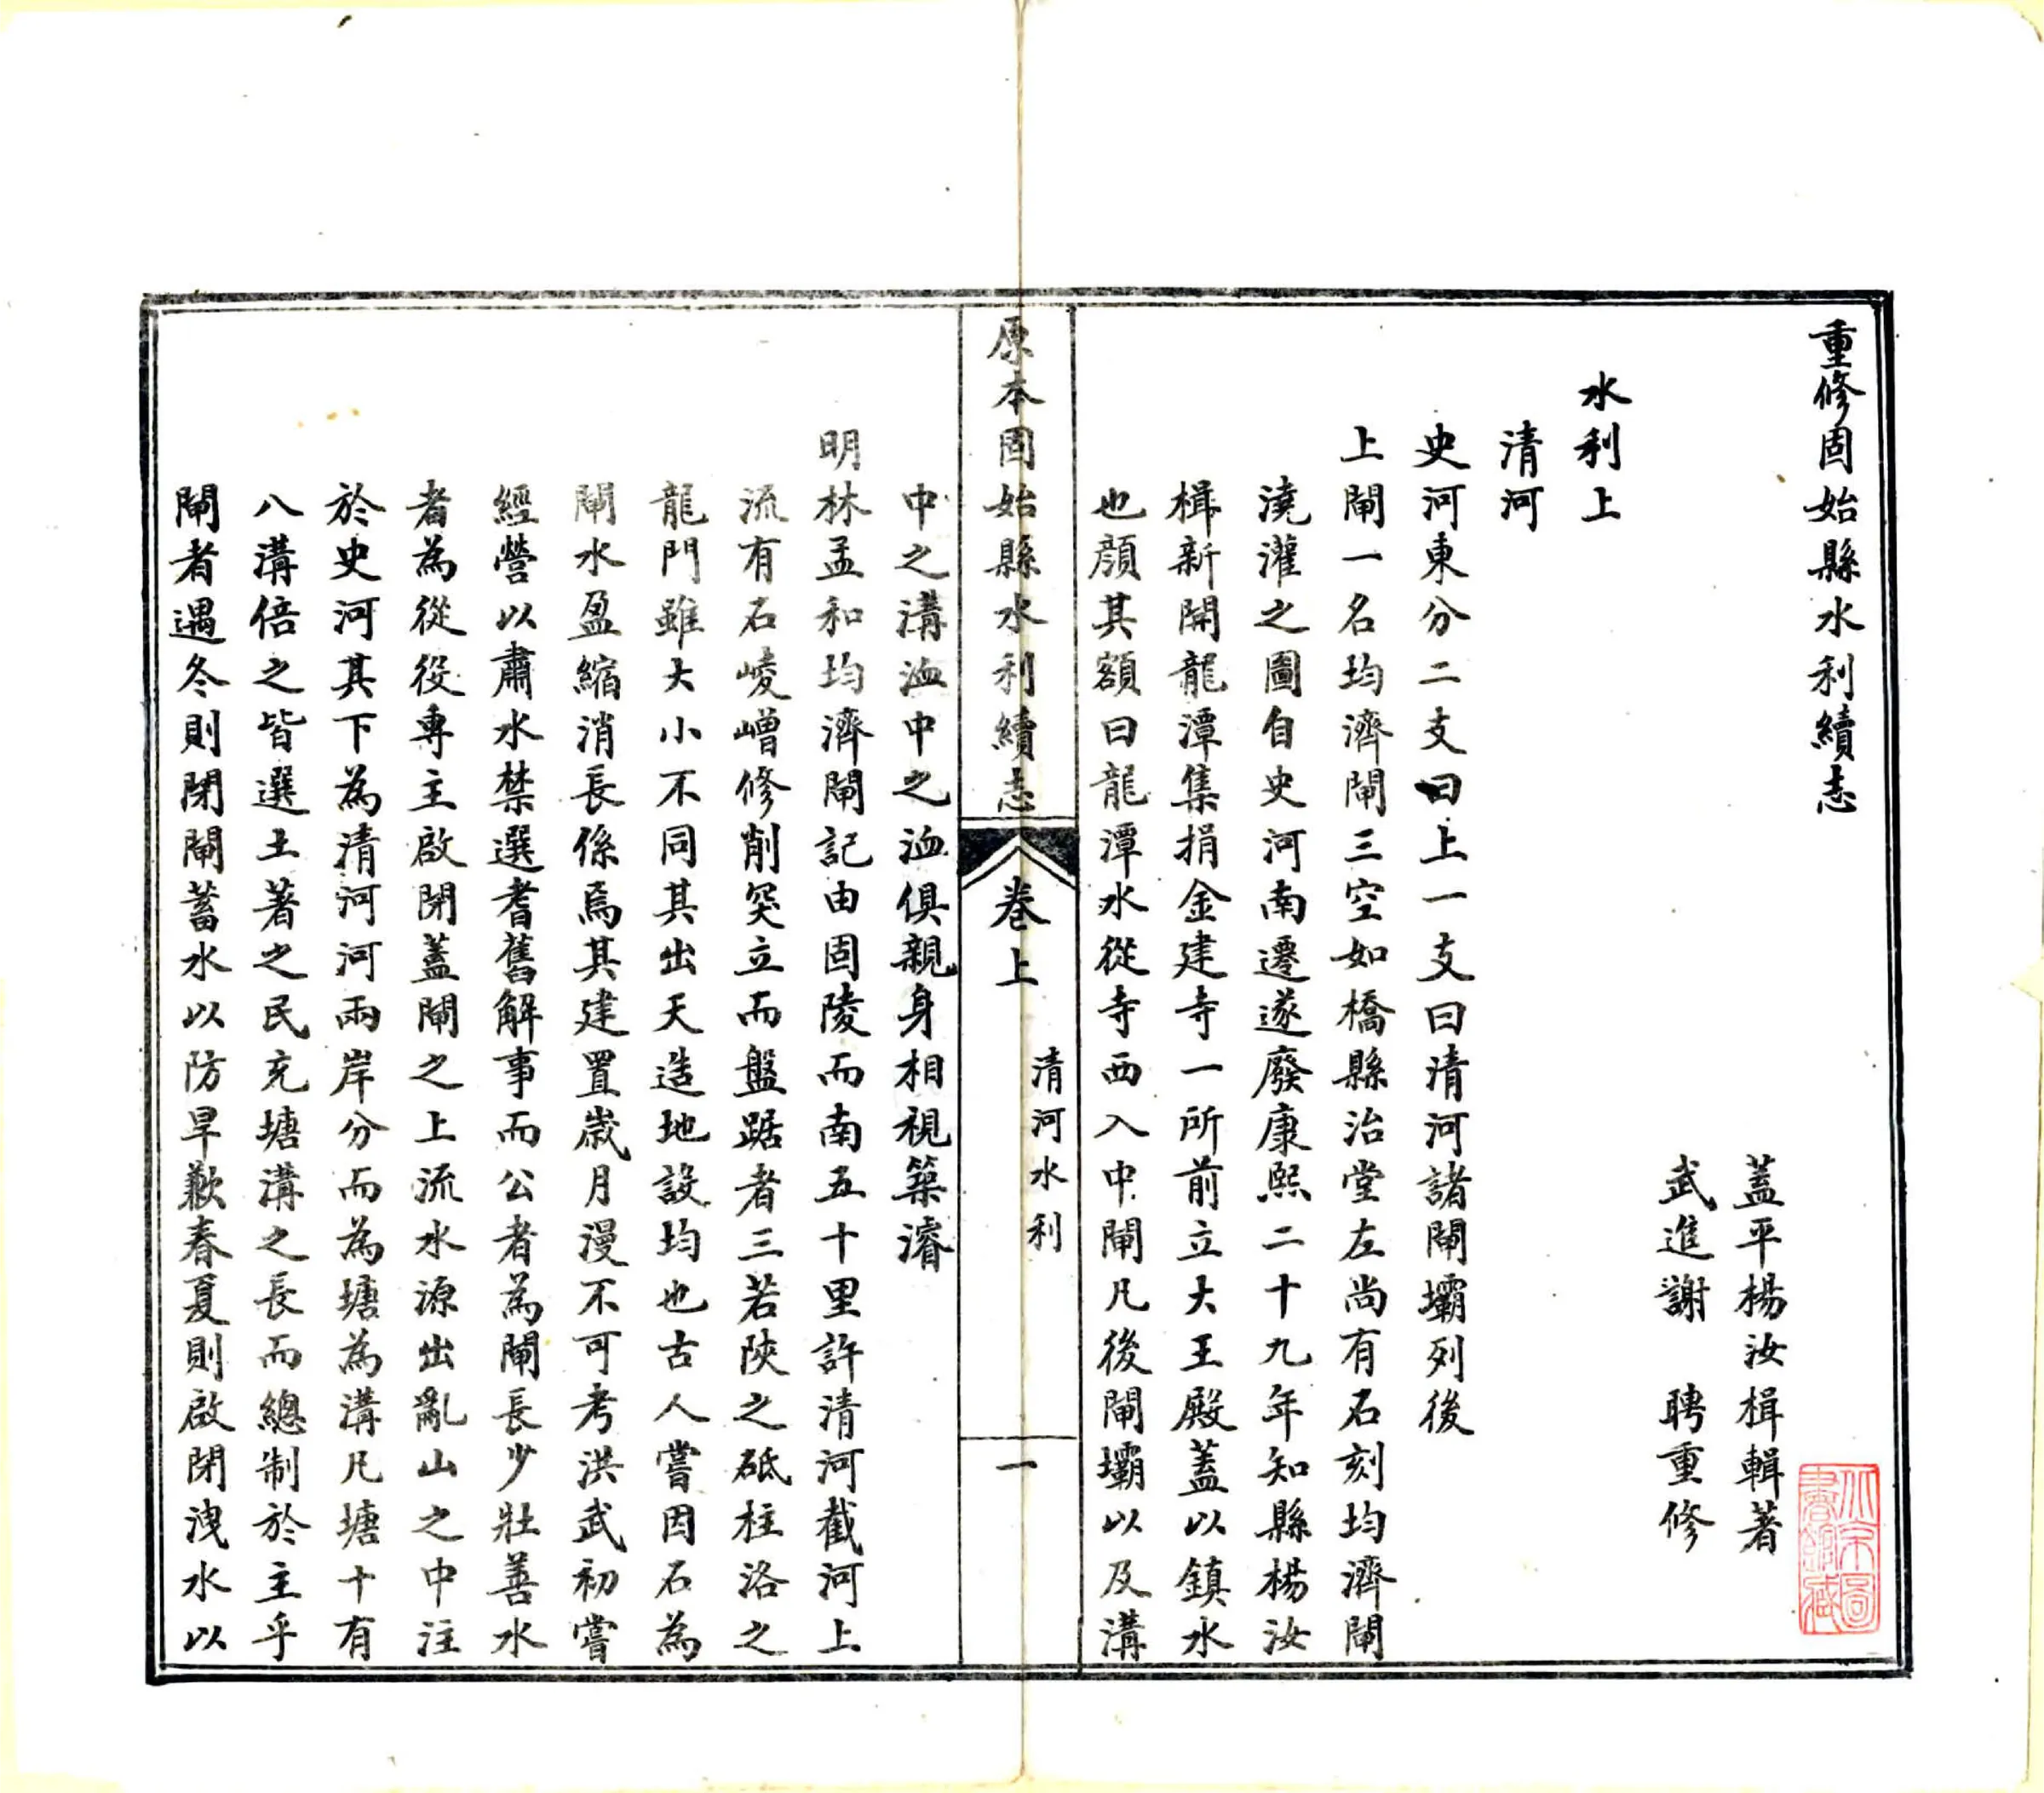 重修固始縣水利續志
蓋平楊汝楫輯著
武進謝　聘重修
水利上
清河
史河東分二支曰上一支曰清河諸閘壩列後
上閘一名均濟閘三空如橋縣治堂左尚有石刻均濟閘
澆灌之圖自史河南遷遂廢康熙二十九年知縣楊汝
楫新開龍潭集捐金建寺一所前立大王殿蓋以鎮水
也顏其額曰龍潭水從寺西入中閘凡後閘壩以及溝
原本固始縣水利續志
卷上
清河水利
一
中之溝洫中之洫俱親身相視築濬
明林孟和均濟閘記由固陵而南五十里許清河截河上
流有石崚嶒修削突立而盤踞者三若陝之砥柱洛之
龍門雖大小不同其出天造地設均也古人嘗因石為
閘水盈縮消長係焉其建置歲月漫不可考洪武初嘗
經營以肅水禁選耆舊解事而公者為閘長少壯善水
者為從役專主啟閉蓋閘之上流水源出亂山之中注
於史河其下為清河河兩岸分而為塘為溝凡塘十有
八溝倍之皆選土著之民充塘溝之長而總制於主乎
閘者遇冬則閉閘蓄水以防旱歉春夏則啟閉洩水以